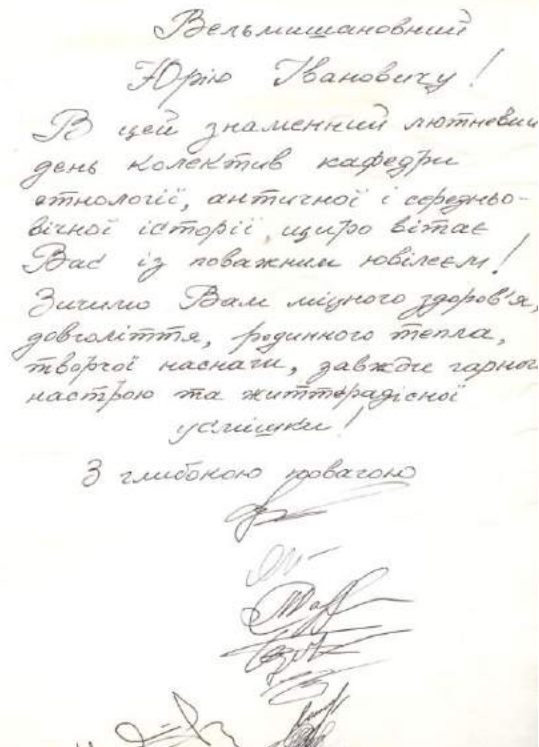 Вельмишановний
Юрію Івановичу!
В цей знаменний лютневий
день колектив кафедри
етнології, античної і середньо-
вічної історії, щиро вітає
Вас із поважним ювілеєм!
Зичимо Вам міцного здоров'я,
довголіття, родинного тепла,
творчої наснаги, завжди гарного
настрою та життєрадісної
усмішки!
З глибокою повагою